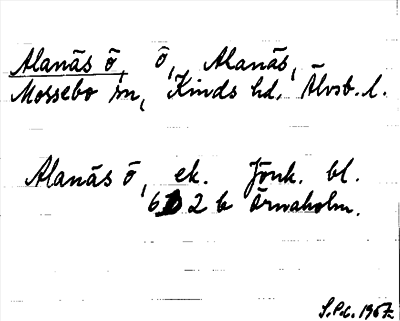 Alanäs ö, ö, Alanäs,
Mossebo sn, Kinds hd, Älvsb. l.
Alanäs ö, ek. Jönk. bl.
6D 2 b Örnaholm.
S.P.C. 1967